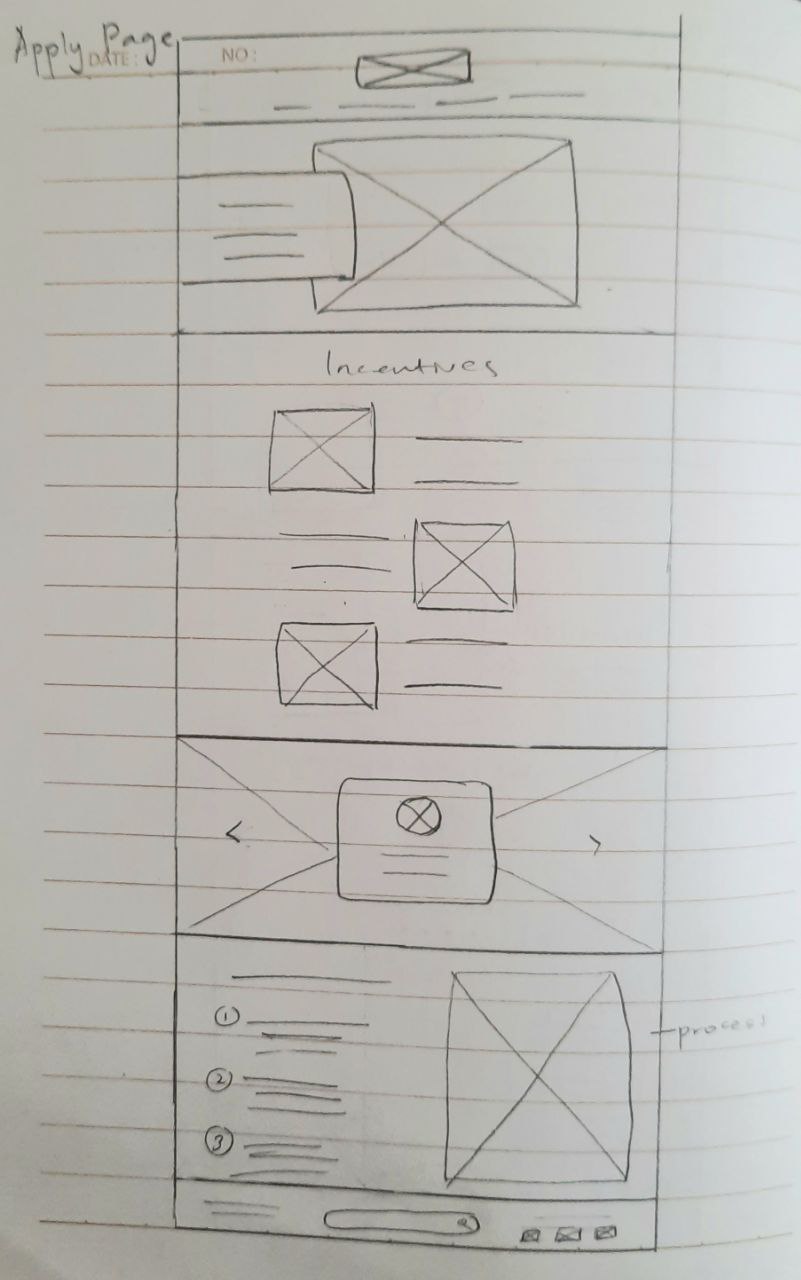 Apply Page
DATE: NO:
Incentives
<
>
1
process
2
3